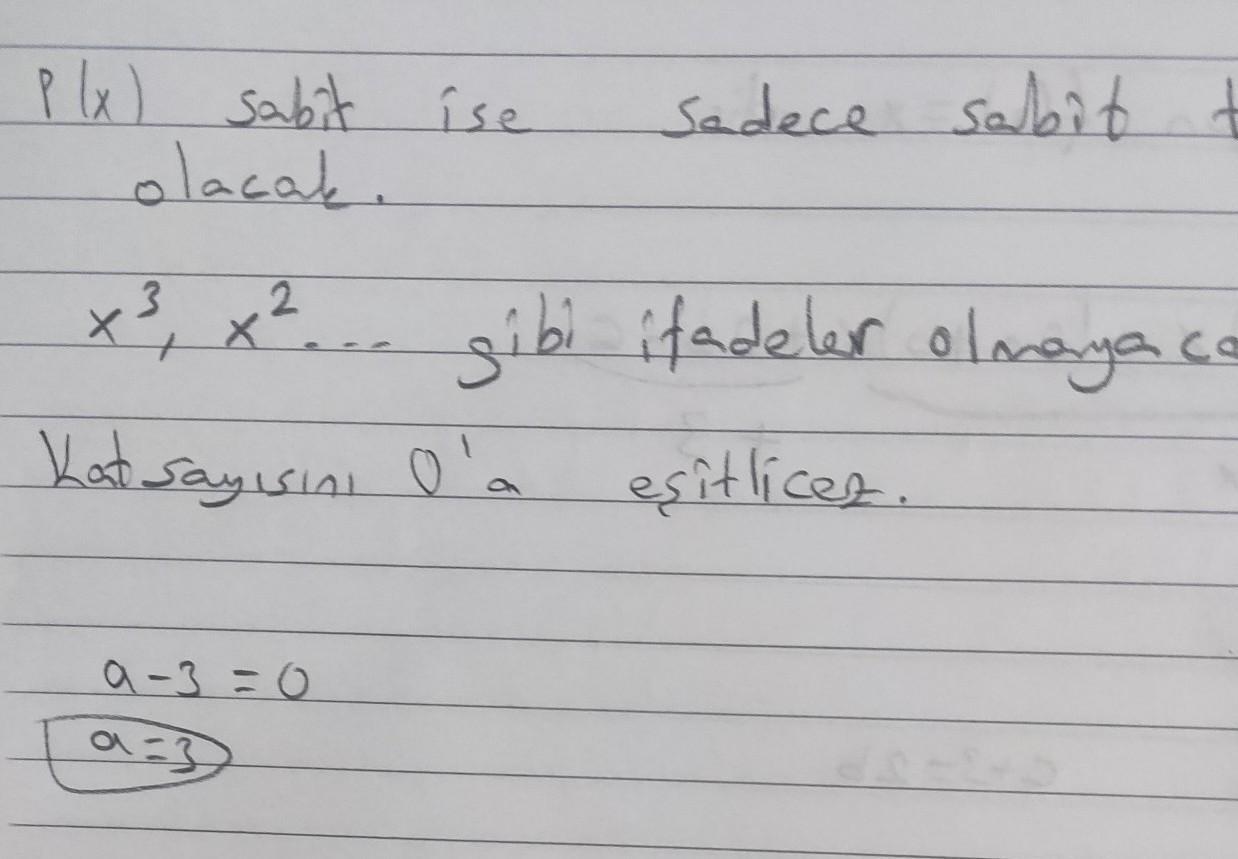 P(x) sabit ise sadece sabit t
olacak.
x³, x² ... gibi ifadeler olmayaca
Katsayısını 0'a eşitlicez.
a-3=0
a=3